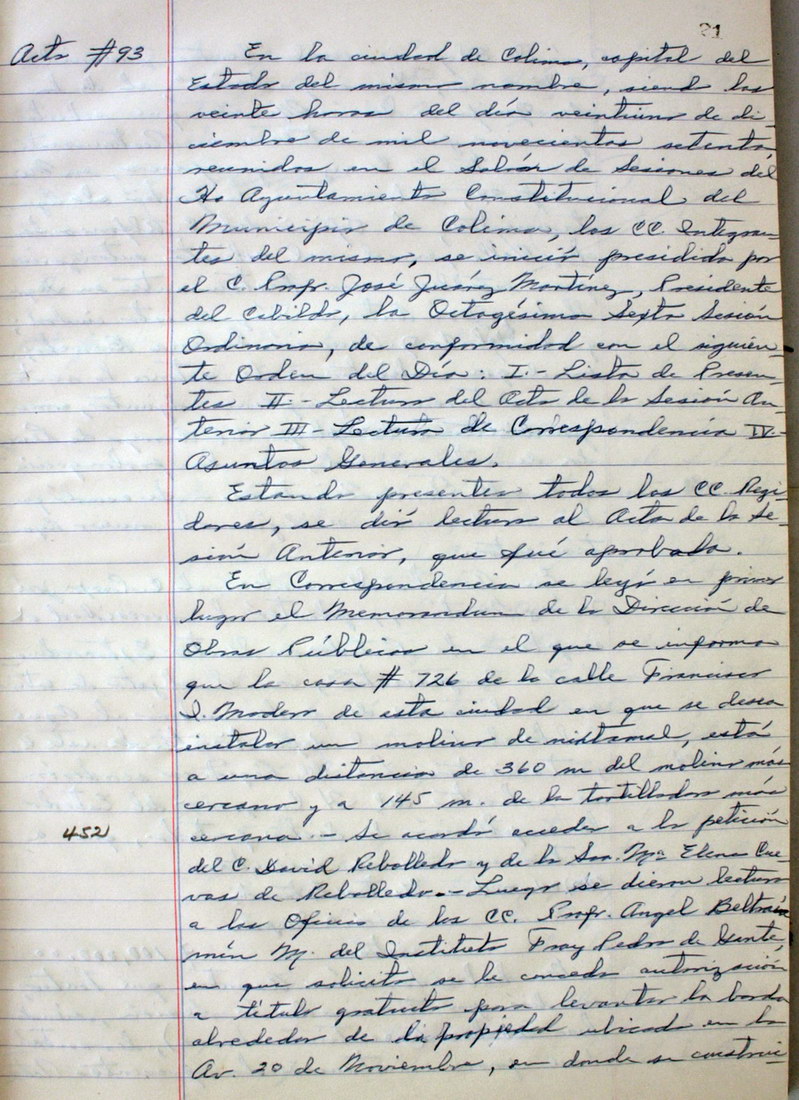 21
Acta #93
En la ciudad de Colima, capital del
Estado del mismo nombre, siend las
veinte horas del día veintiuno de di-
ciembre de mil novecientos setenta
reunidos en el Salón de Sesiones del
Ho Ayuntamiento Constitucional del
Municipio de Colima, los CC. Integran-
tes del mismo, se inició presidida por
el C. Profr. José Juárez Martínez, Presidente
del Cabildo, la Octagésima Sexta Sesión
Ordinaria, de conformidad con el siguien-
te Orden del Día: I.- Lista de Presen-
tes II.- Lectura del Acta de la Sesión An-
terior III- Lectura de Correspondencia IV.-
Asuntos Generales.
Estando presentes todos los CC. Regi-
dores, se dió lectura al Acta de la Se-
sión Anterior, que fué aprobada.
En Correspondencia se leyó en primer
lugar el Memorandum de la Dirección de
Obras Públicas en el que se informa
que la casa # 726 de la calle Francisco
I. Madero de esta ciudad en que se desea
instalar un molino de nixtamal, está
a una distancia de 360 m del molino más
cercano y a 145 m. de la tortilladora más
452
cercana.- Se acordó acceder a la petición
del C. David Rebolledo y de la Sra. Ma Elena Cue-
vas de Rebolledo.- Luego se dieron lectura
a los Oficios de los CC. Profr. Angel Beltrán
mín M. del Instituto Fray Pedro de Gante,
en que solicita se le conceda autorización
a título gratuito para levantar la barda
alrededor de la propiedad ubicada en la
Av. 20 de Noviembre, en donde se construi